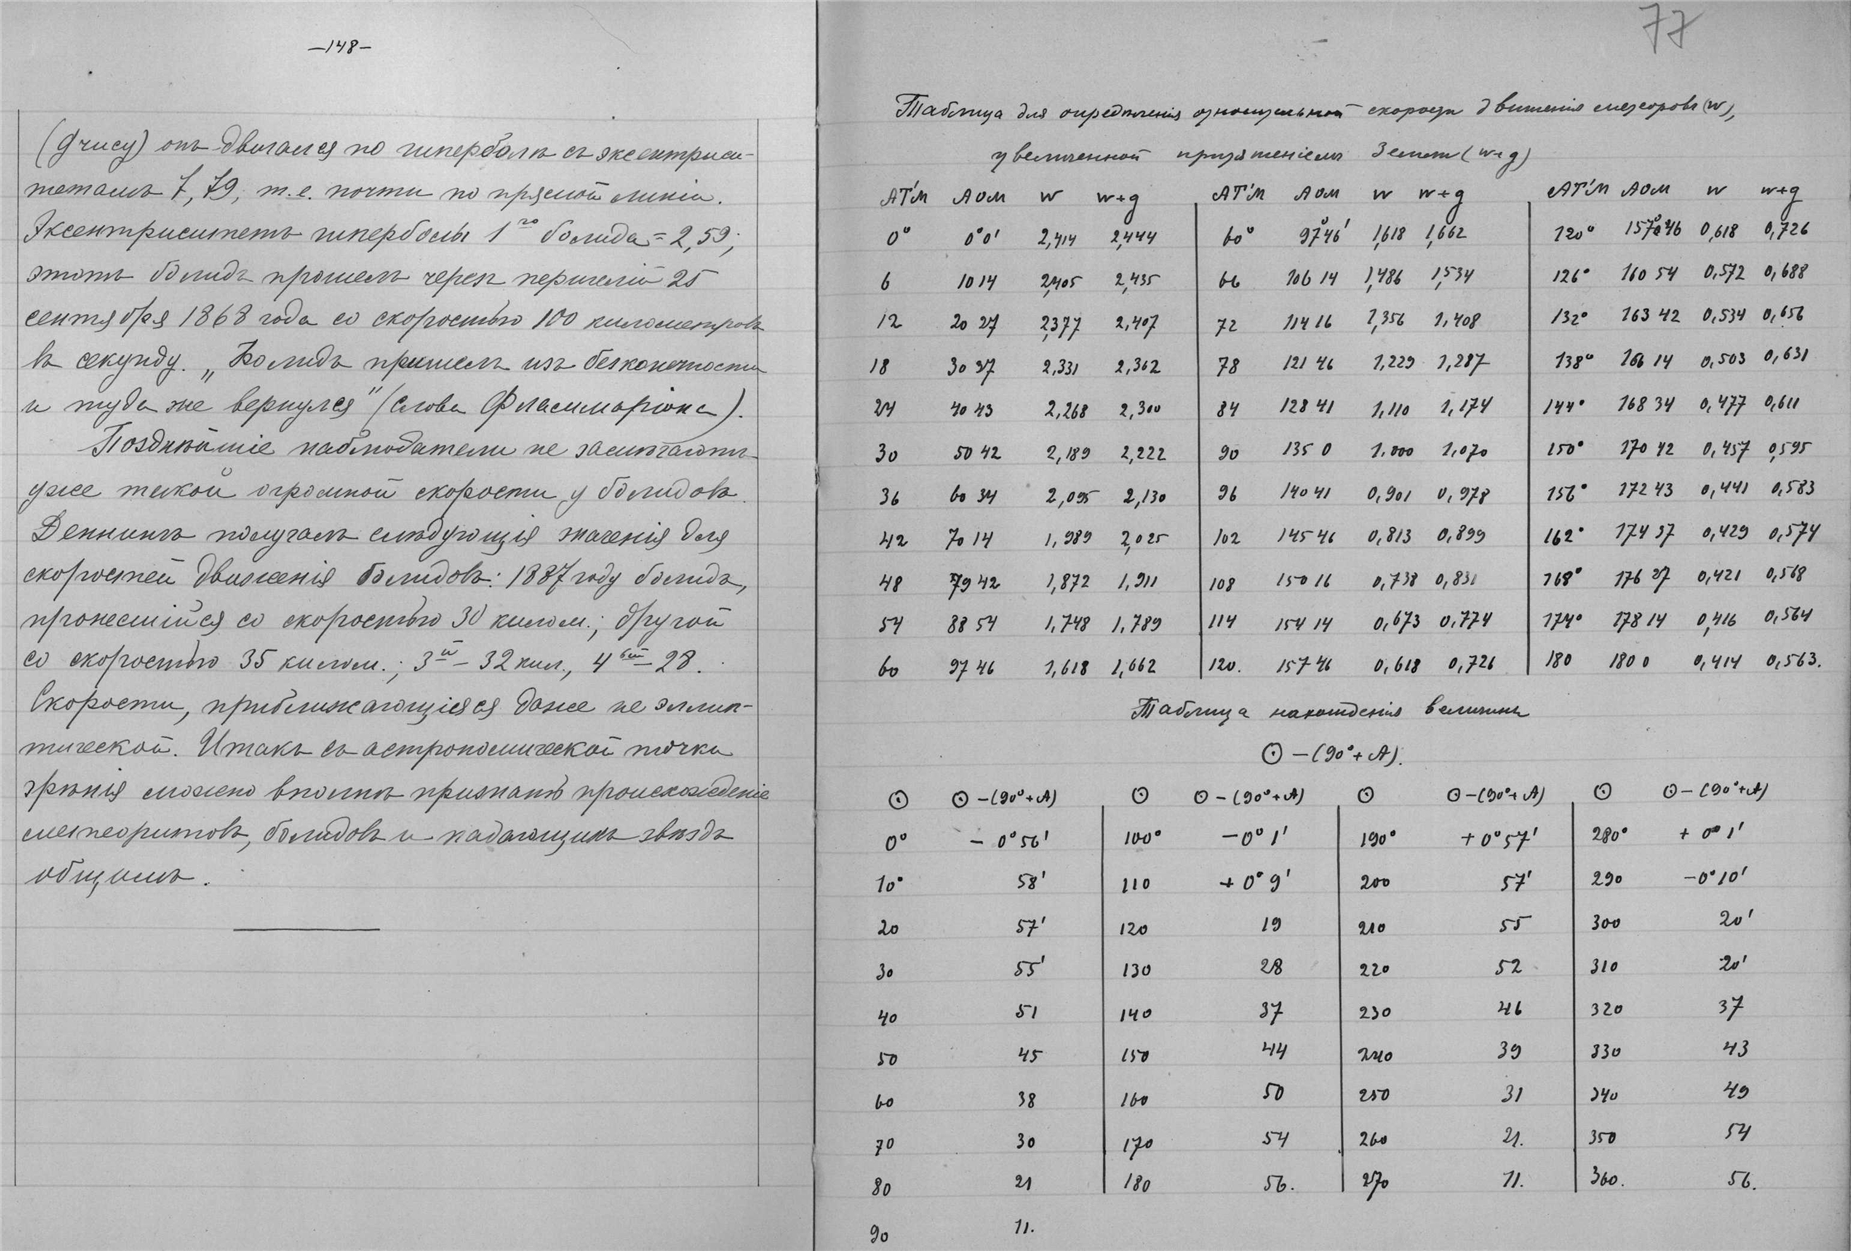 —148—
(Ducy) онъ двигался по гиперболѣ съ эксентриси-
тетомъ 7,79, т.е. почти по прямой линіи.
Эксентриситетъ гиперболы 1го болида = 2,59;
этотъ болидъ прошелъ черезъ перигелій 25
сентября 1868 года со скоростью 100 километровъ
въ секунду. „Болидъ пришелъ изъ безконечности
и туда же вернулся" (слова Фламмаріона).
Позднѣйшіе наблюдатели не замѣчаютъ
уже такой огромной скорости у болидовъ.
Деннингъ получалъ слѣдующія значенія для
скоростей движенія болидовъ: 1887 году болидъ,
пронесшійся со скоростью 30 килом.; другой
со скоростью 35 килом.; 3й — 32 кил., 4ый — 28.
Скорости, приближающіяся даже не эллип-
тической. Итакъ съ астрономической точки
зрѣнія можно вполнѣ признать происхожденіе
метеоритовъ, болидовъ и падающихъ звѣздъ
общимъ.
77
Таблица для опредѣленія относительной скорости движенія метеоровъ (w),
увеличенной притяженіемъ Земли (w+g)
AT'M AOM w w+g AT'M AOM w w+g AT'M AOM w w+g
0° 0°0' 2,414 2,444 60° 97°46' 1,618 1,662 120° 157°46 0,618 0,726
6 10 14 2,405 2,435 66 106 14 1,486 1,534 126° 160 54 0,572 0,688
12 20 27 2,377 2,407 72 114 16 1,356 1,408 132° 163 42 0,534 0,656
18 30 37 2,331 2,362 78 121 46 1,229 1,287 138° 166 14 0,503 0,631
24 40 43 2,268 2,300 84 128 41 1,110 1,174 144° 168 34 0,477 0,611
30 50 42 2,189 2,222 90 135 0 1.000 1,070 150° 170 42 0,457 0,595
36 60 34 2,095 2,130 96 140 41 0,901 0,978 156° 172 43 0,441 0,583
42 70 14 1,989 2,025 102 145 46 0,813 0,899 162° 174 37 0,429 0,574
48 79 42 1,872 1,911 108 150 16 0,738 0,831 168° 176 27 0,421 0,568
54 88 54 1,748 1,789 114 154 14 0,673 0,774 174° 178 14 0,416 0,564
60 97 46 1,618 1,662 120. 157 46 0,618 0,726 180 180 0 0,414 0,563.
Таблица нахожденія величины
⊙ — (90° + A).
⊙ ⊙ — (90° + A) ⊙ ⊙ — (90° + A) ⊙ ⊙ — (90° + A) ⊙ ⊙ — (90° + A)
0° — 0° 56' 100° — 0° 1' 190° + 0° 57' 280° + 0° 1'
10° 58' 110 + 0° 9' 200 57' 290 — 0° 10'
20 57' 120 19 210 55 300 20'
30 55' 130 28 220 52 310 20'
40 51 140 37 230 46 320 37
50 45 150 44 240 39 330 43
60 38 160 50 250 31 340 49
70 30 170 54 260 21. 350 54
80 21 180 56. 270 11. 360. 56.
90 11.